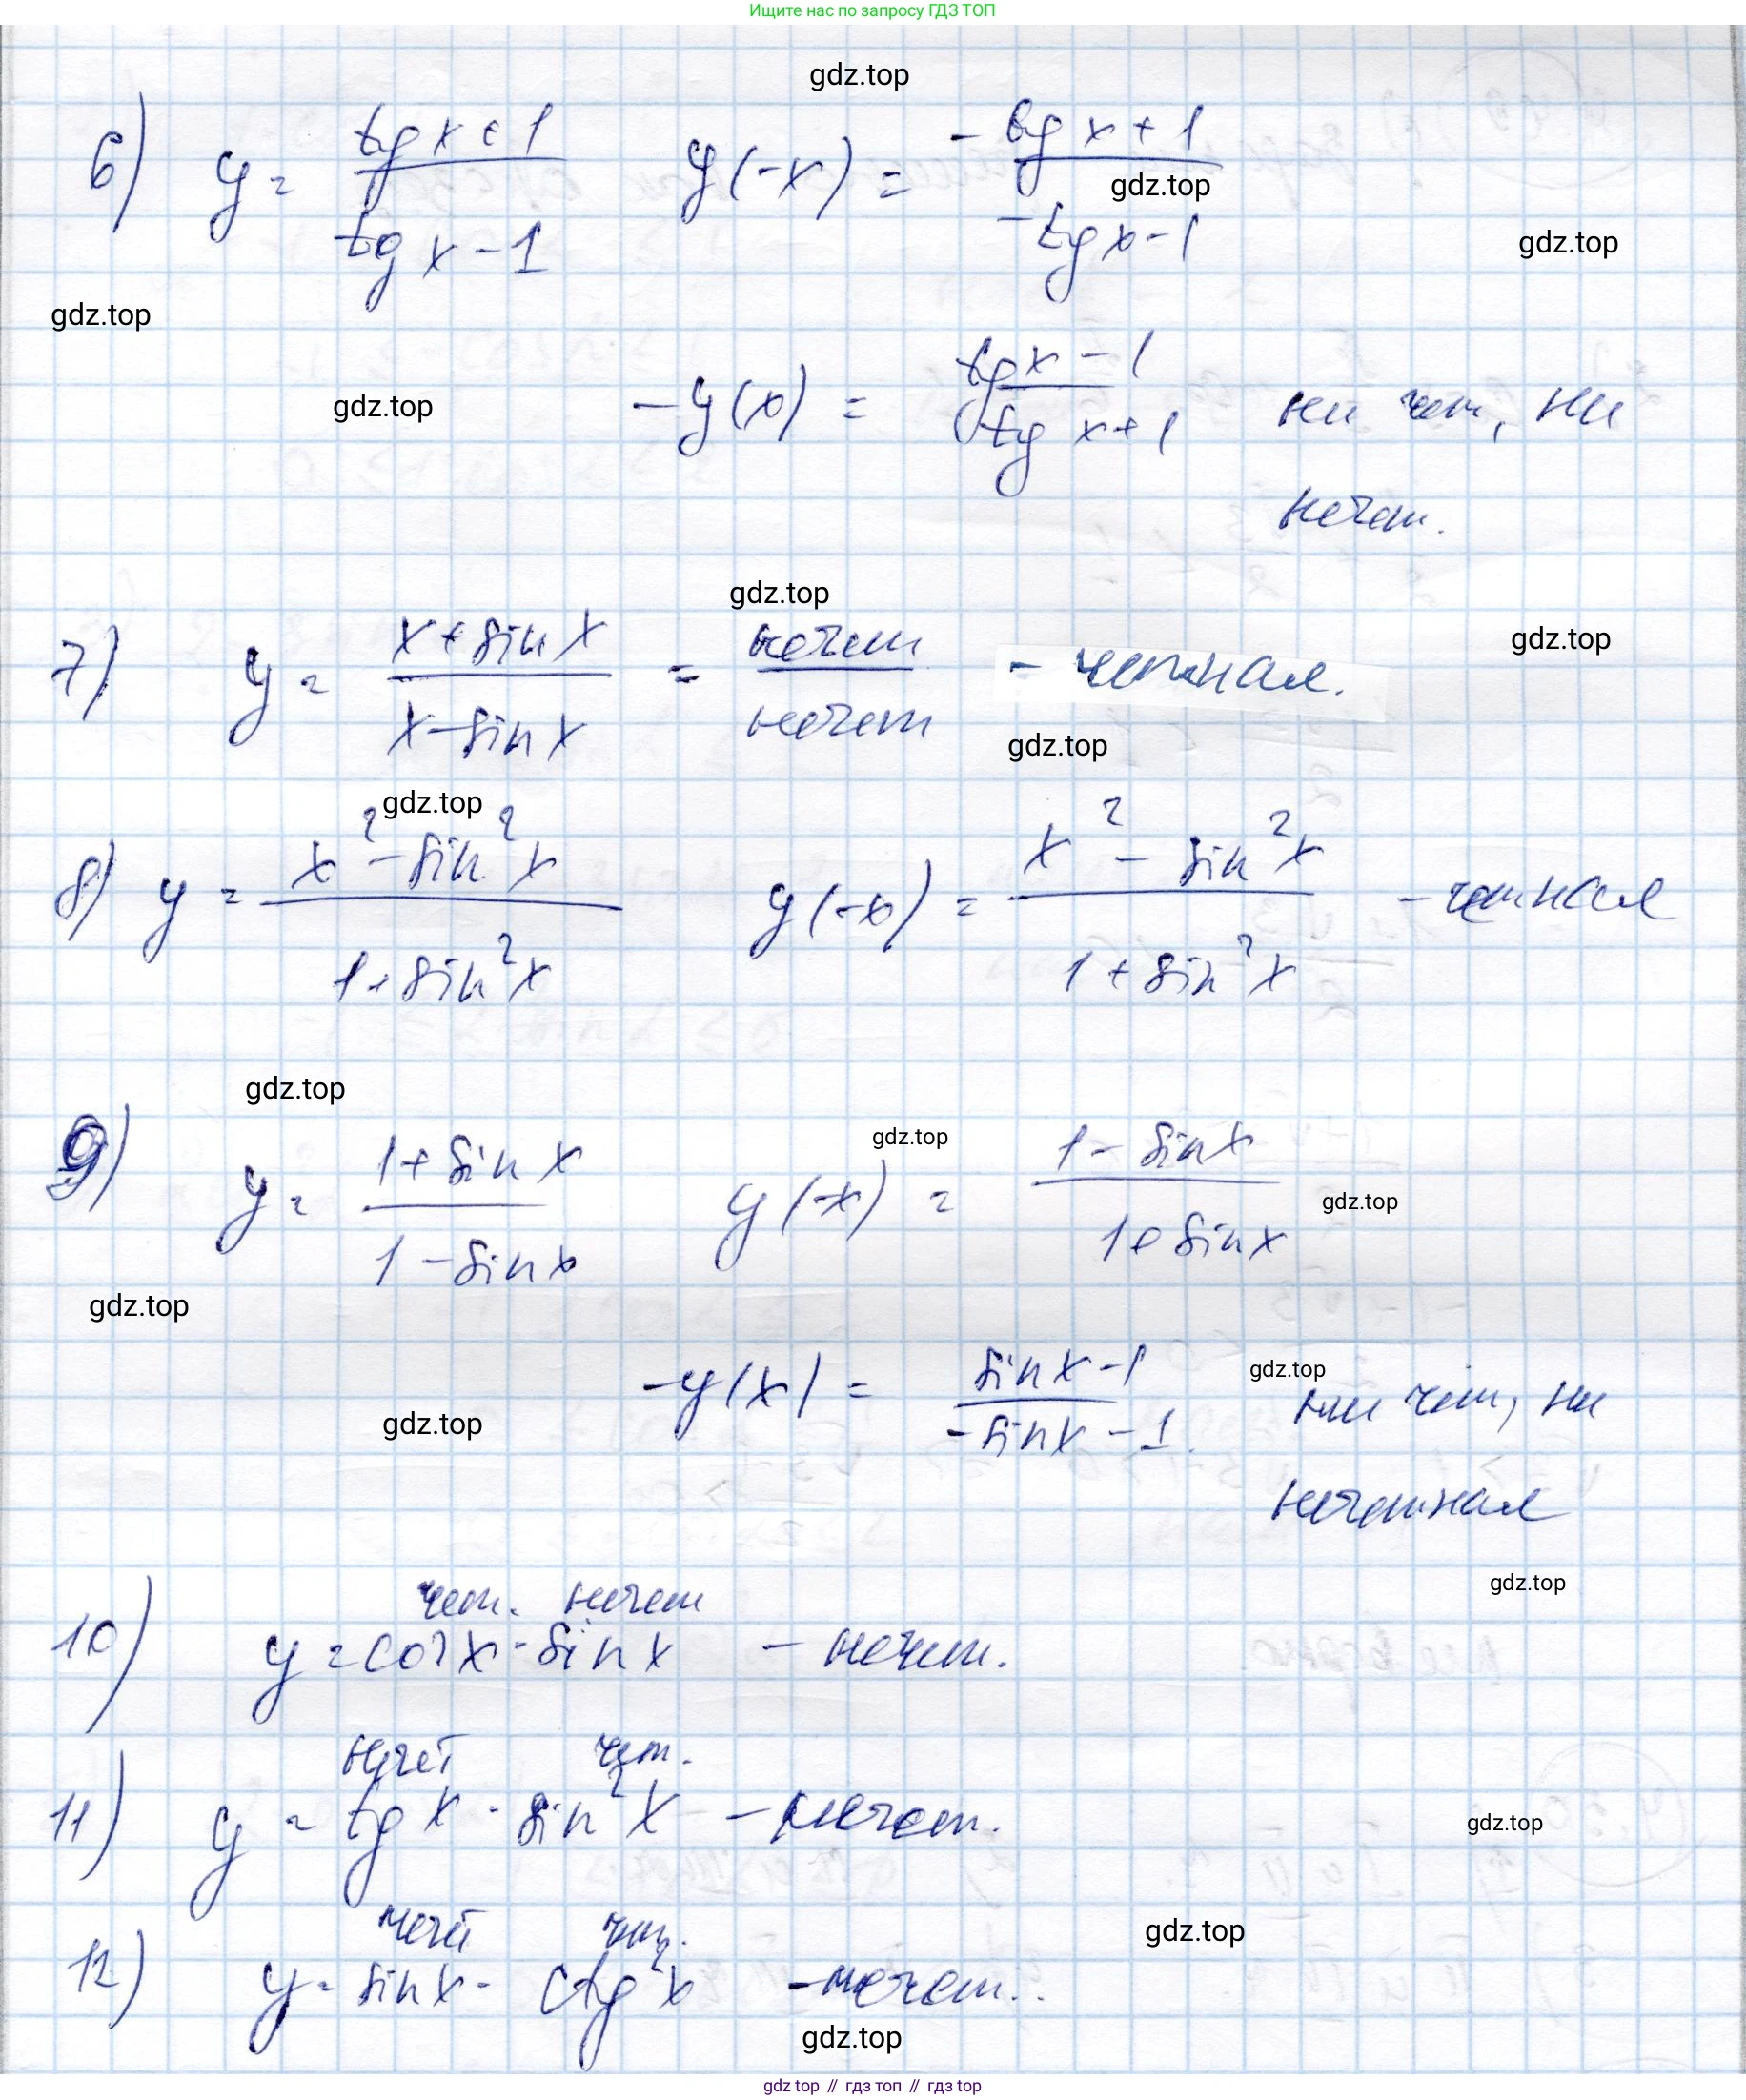 Ищите нас по запросу ГДЗ ТОП
gdz.top
6) y = tg x + 1 / tg x - 1 y(-x) = -tg x + 1 / -tg x - 1
gdz.top
gdz.top
gdz.top
gdz.top -y(x) = tg x - 1 / tg x + 1 ни чет, ни
нечет.
gdz.top
7) y = x + sin x / x - sin x = нечет / нечет - четная.
gdz.top
gdz.top
gdz.top
8) y = x² - sin² x / 1 + sin² x y(-x) = x² - sin² x / 1 + sin² x - четная
gdz.top
gdz.top
9) y = 1 + sin x / 1 - sin x y(-x) = 1 - sin x / 1 + sin x
gdz.top
gdz.top
gdz.top
-y(x) = sin x - 1 / -sin x - 1 ни чет, ни
gdz.top
нечетная
gdz.top
чет. нечет
10) y = cos x · sin x - нечет.
нечет чет.
11) y = tg x · sin² x - нечет.
gdz.top
нечет чет.
gdz.top
12) y = sin x · ctg² x - нечет.
gdz.top
gdz top // гдз топ // гдз top